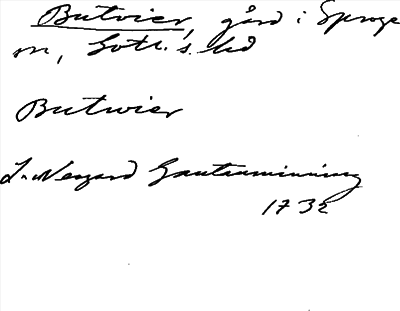 Butvier, gård i Sproge
sn, Gotl. s. hd
Butwier
L. Neogard Gautaminning
1732